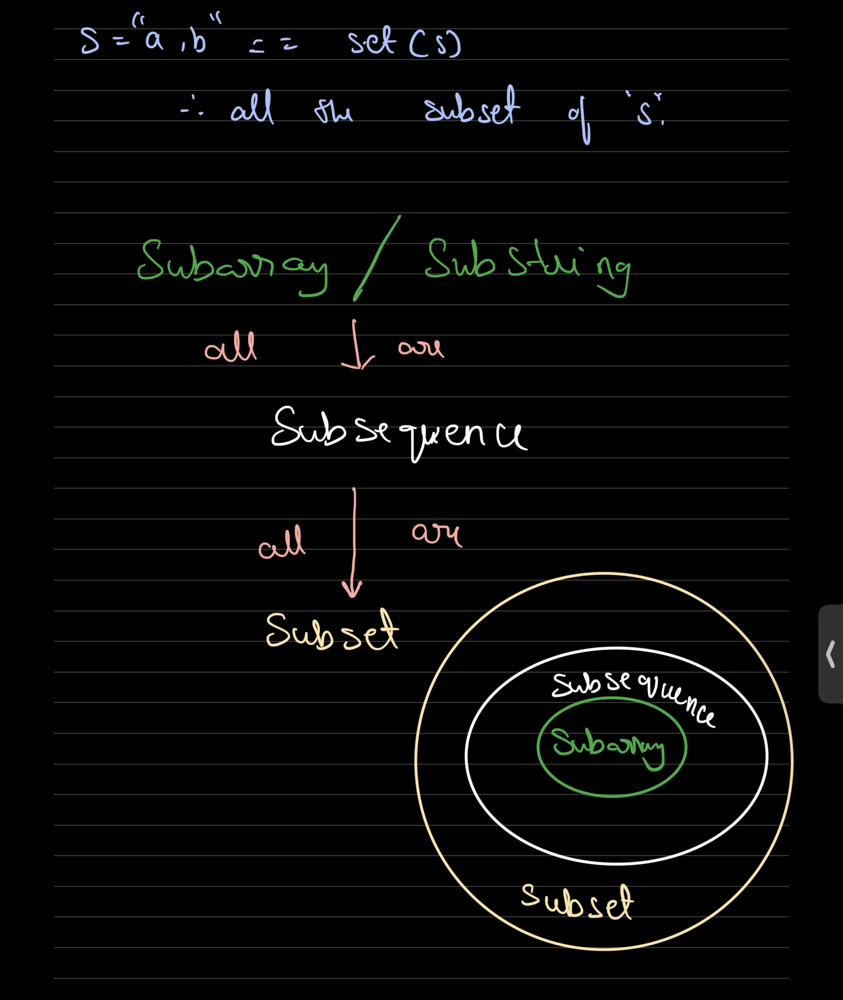 S = "a, b" == set(s)
∴ all the subset of 's'.
Subarray / Substring
all ↓ are
Subsequence
all ↓ are
Subset
Subsequence
Subarray
Subset